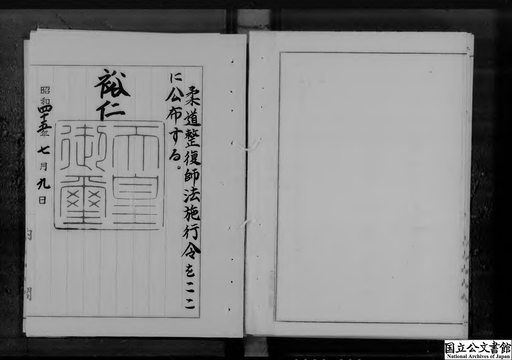 柔道整復師法施行令をここ
に公布する。
裕仁
天皇
御璽
昭和四十五年七月九日
国立公文書館
National Archives of Japan